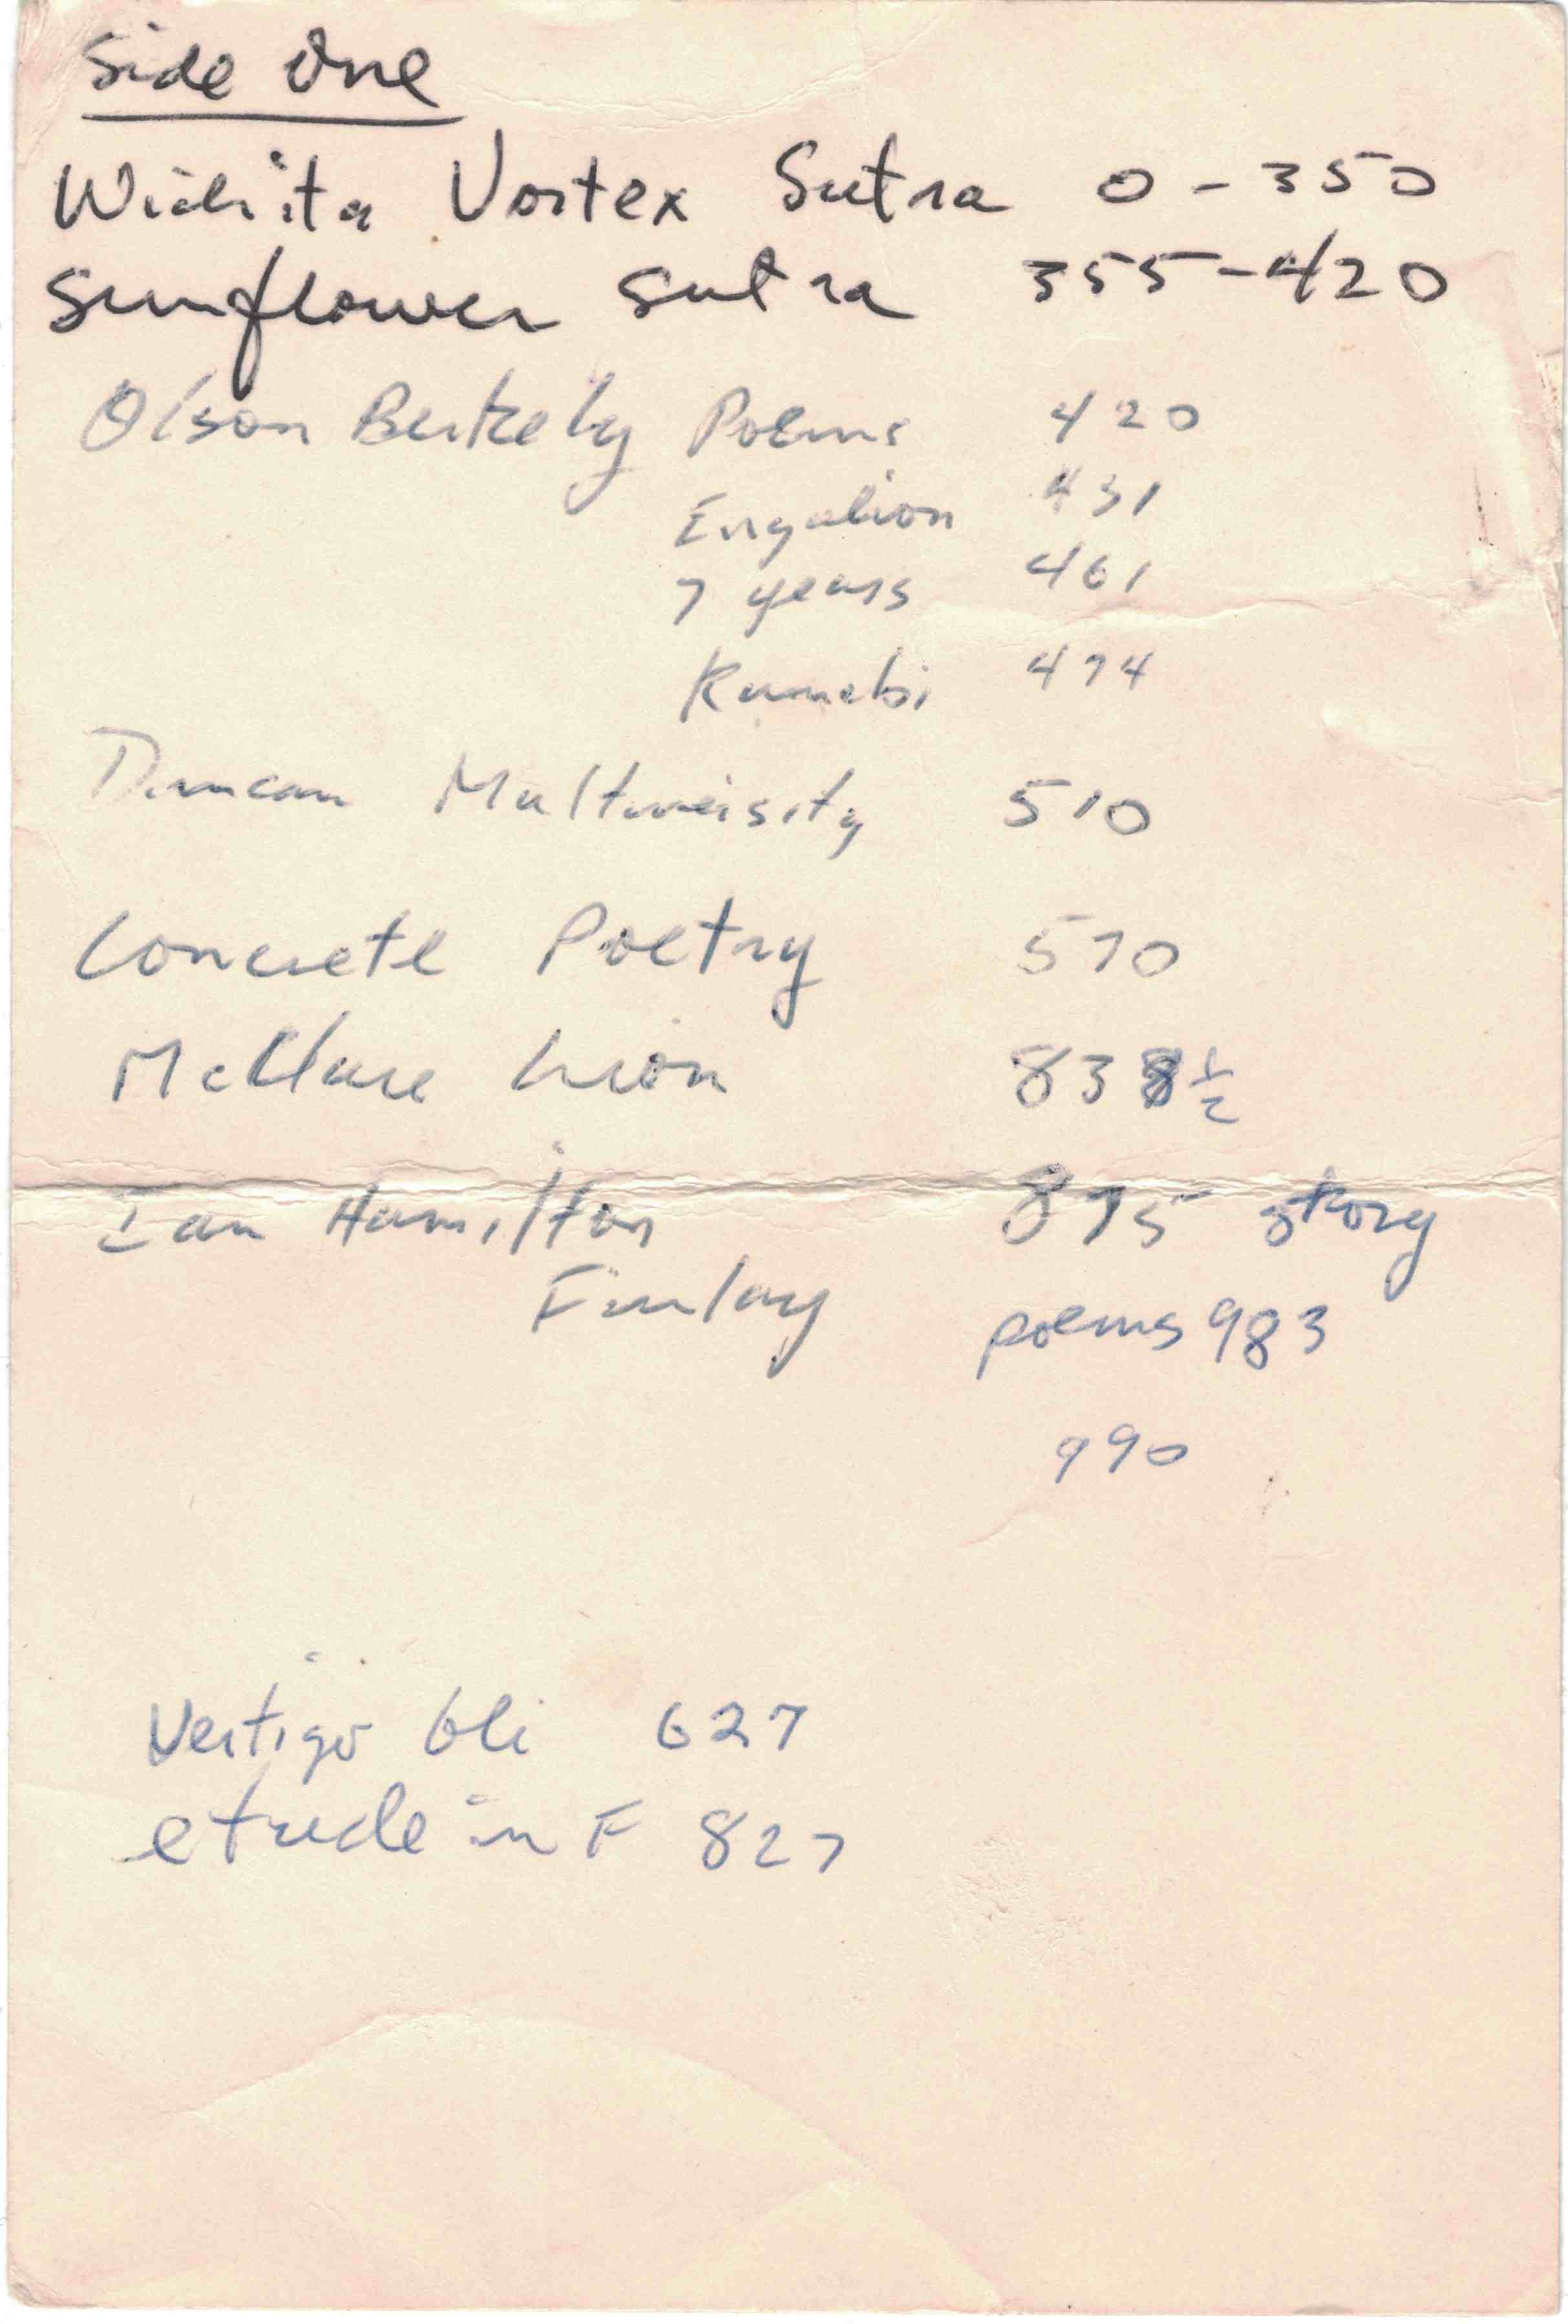 Side One
Wichita Vortex Sutra 0 - 350
Sunflower Sutra 355-420
Olson Berkely Poems 420
431
7 years 461
Kumebi 474
Duncan Multiversity 510
Concrete Poetry 570
McClure Lion 838½
Ian Hamilton 875 story
Finlay poems 983
990
Vertigo Gli 627
etude in F 827